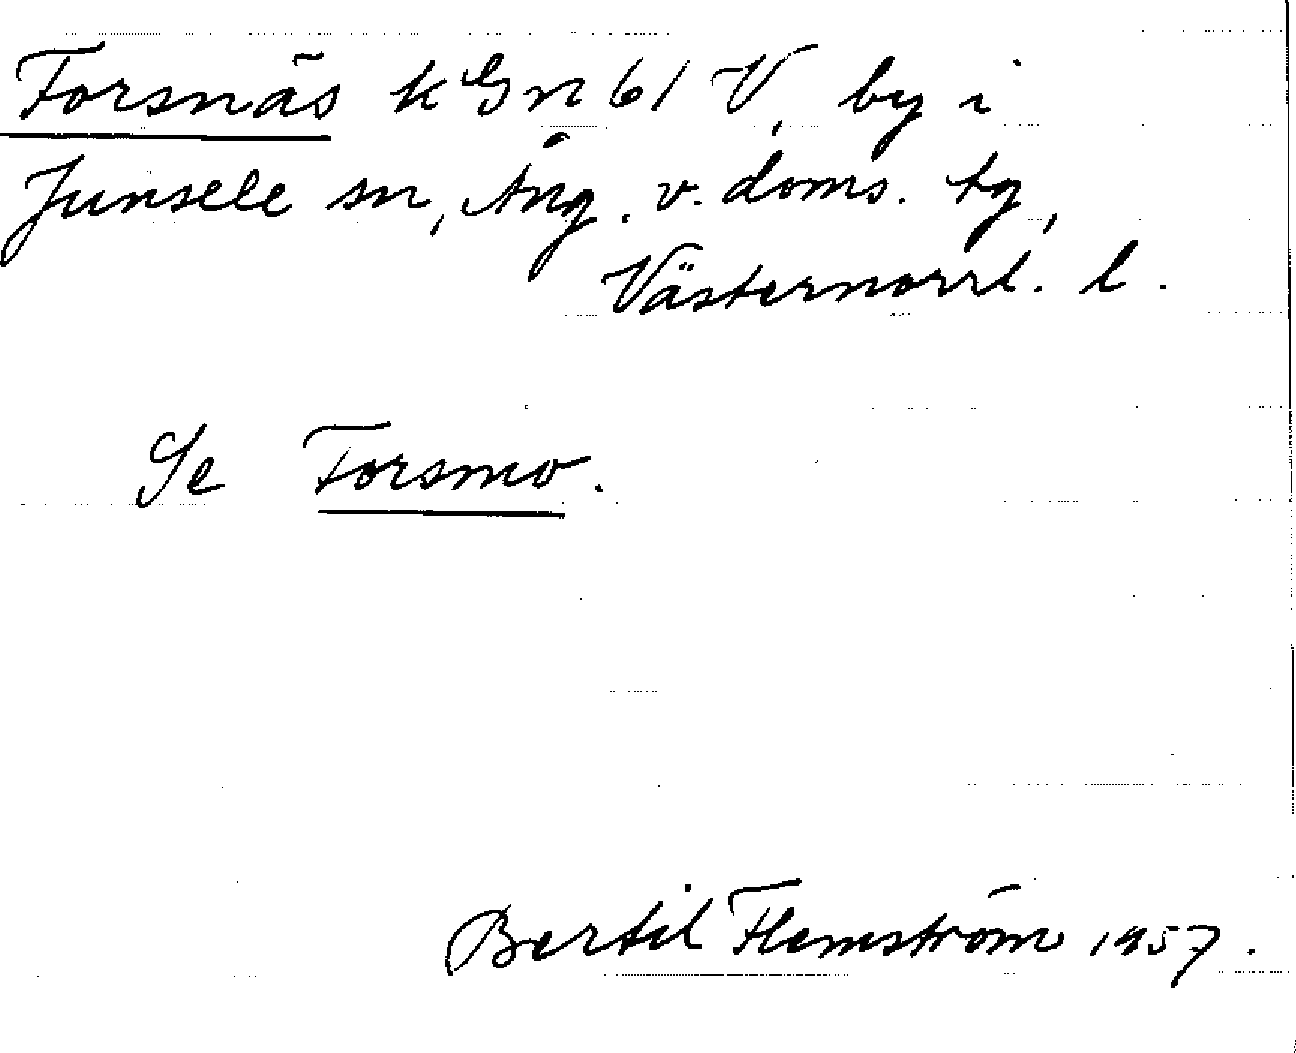 Forsnäs k Gn 61 V, by i
Junsele sn, Ång. v. doms. tg,
Västernorrl. l.
Se Forsmo.
Bertil Flemström 1957.